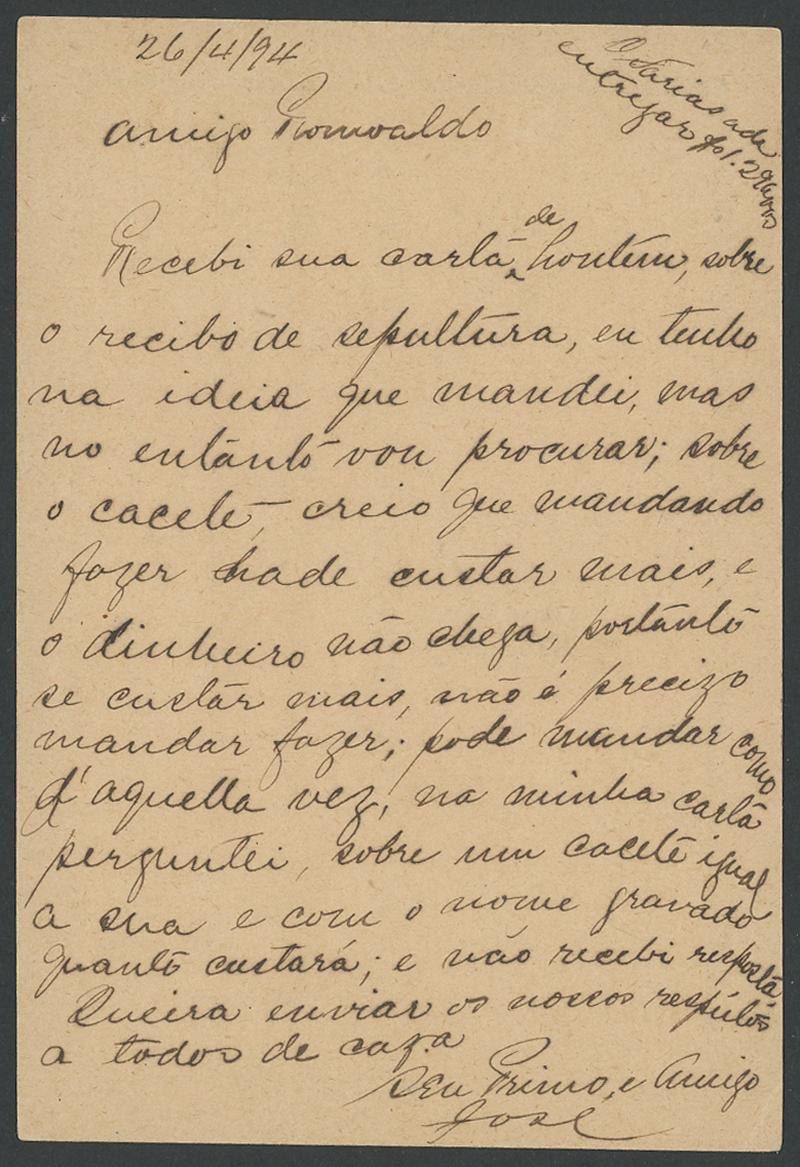 26/4/94
O Farias ade
entregar
Amigo Romualdo
Recebi sua carta de hontem, sobre
o recibo de sepultura, eu tenho
na ideia que mandei, mas
no entanto vou procurar; sobre
o cacete, creio que mandando
fazer hade custar mais, e
o dinheiro não chega, portanto
se custar mais, não é precizo
mandar fazer; pode mandar como
d'aquella vez, na minha carta
perguntei, sobre um cacete igual
a sua e com o nome gravado
quanto custará; e não recebi resposta
Queira enviar os nossos respeitos
a todos de caza
Seu Primo, e Amigo
José